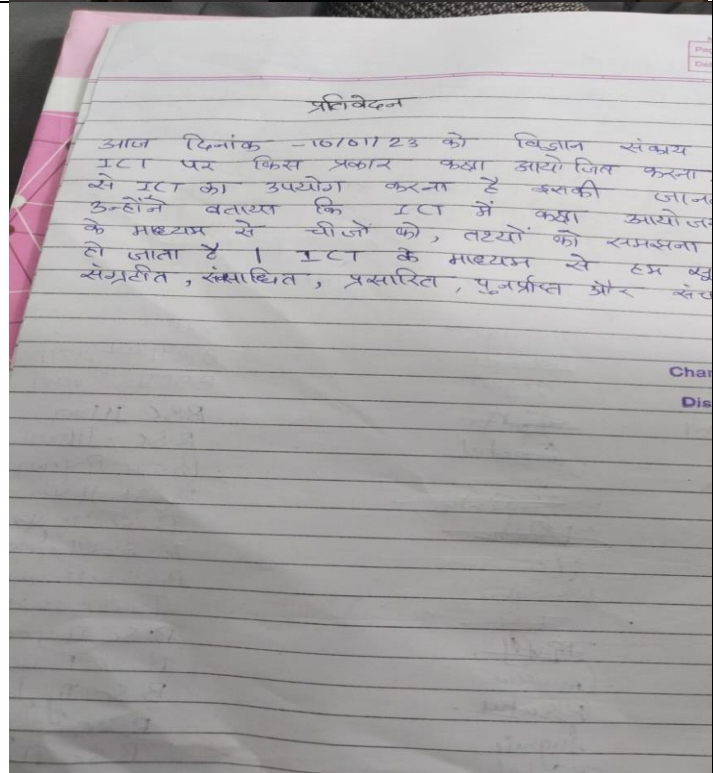 प्रतिवेदन
आज दिनांक -10/01/23 को विज्ञान संकाय
ICT पर किस प्रकार कक्षा आयोजित करना
से ICT का उपयोग करना है इसकी जान
उन्होंने बताया कि ICT में कक्षा आयोज
के माध्यम से चीजों को, तथ्यों को समझना
हो जाता है । ICT के माध्यम से हम
संग्रहीत, संसाधित, प्रसारित, पुनर्प्राप्त और संच
Char
Dis